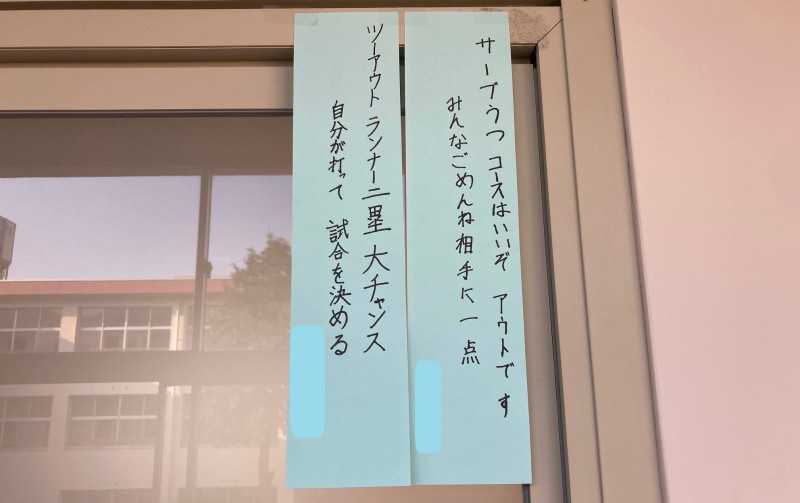 サーブうつ コースはいいぞ アウトです
みんなごめんね相手に一点
ツーアウト ランナー二塁 大チャンス
自分が打って 試合を決める